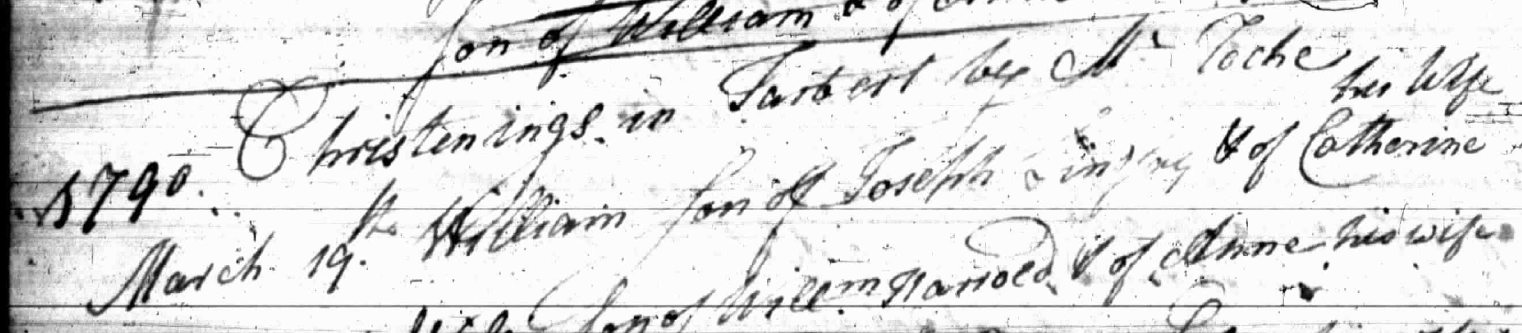 Son of William & of
Christenings in Tarbert by Mr Toche
his Wife
1790.
March 19. th William Son of Joseph & of Catherine
Son of Willm Harrold & of Anne his wife